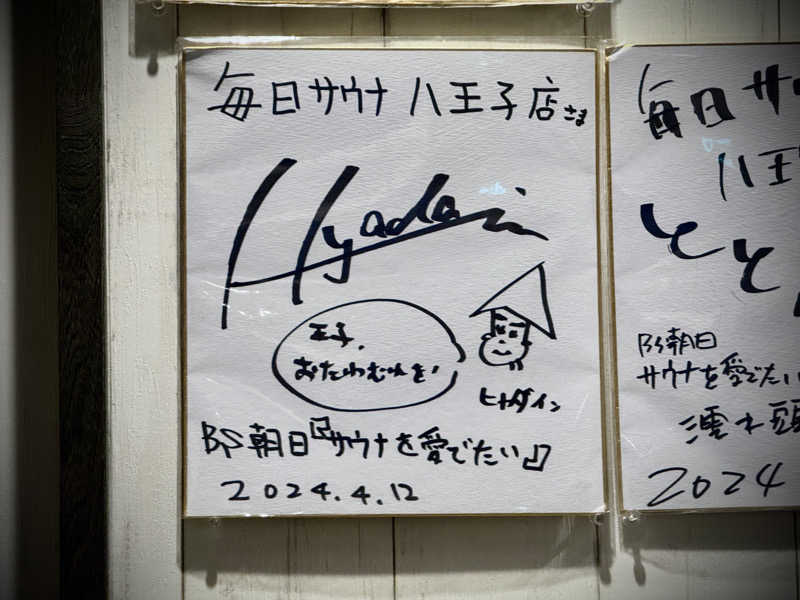 毎日サウナ 八王子店さま
Hyadain
王子、
おたわむれを!
ヒャダイン
BS朝日『サウナを愛でたい』
2024.4.12
毎日サ
八王
とと
BS朝日
サウナを愛でたい
濡れ頭
2024